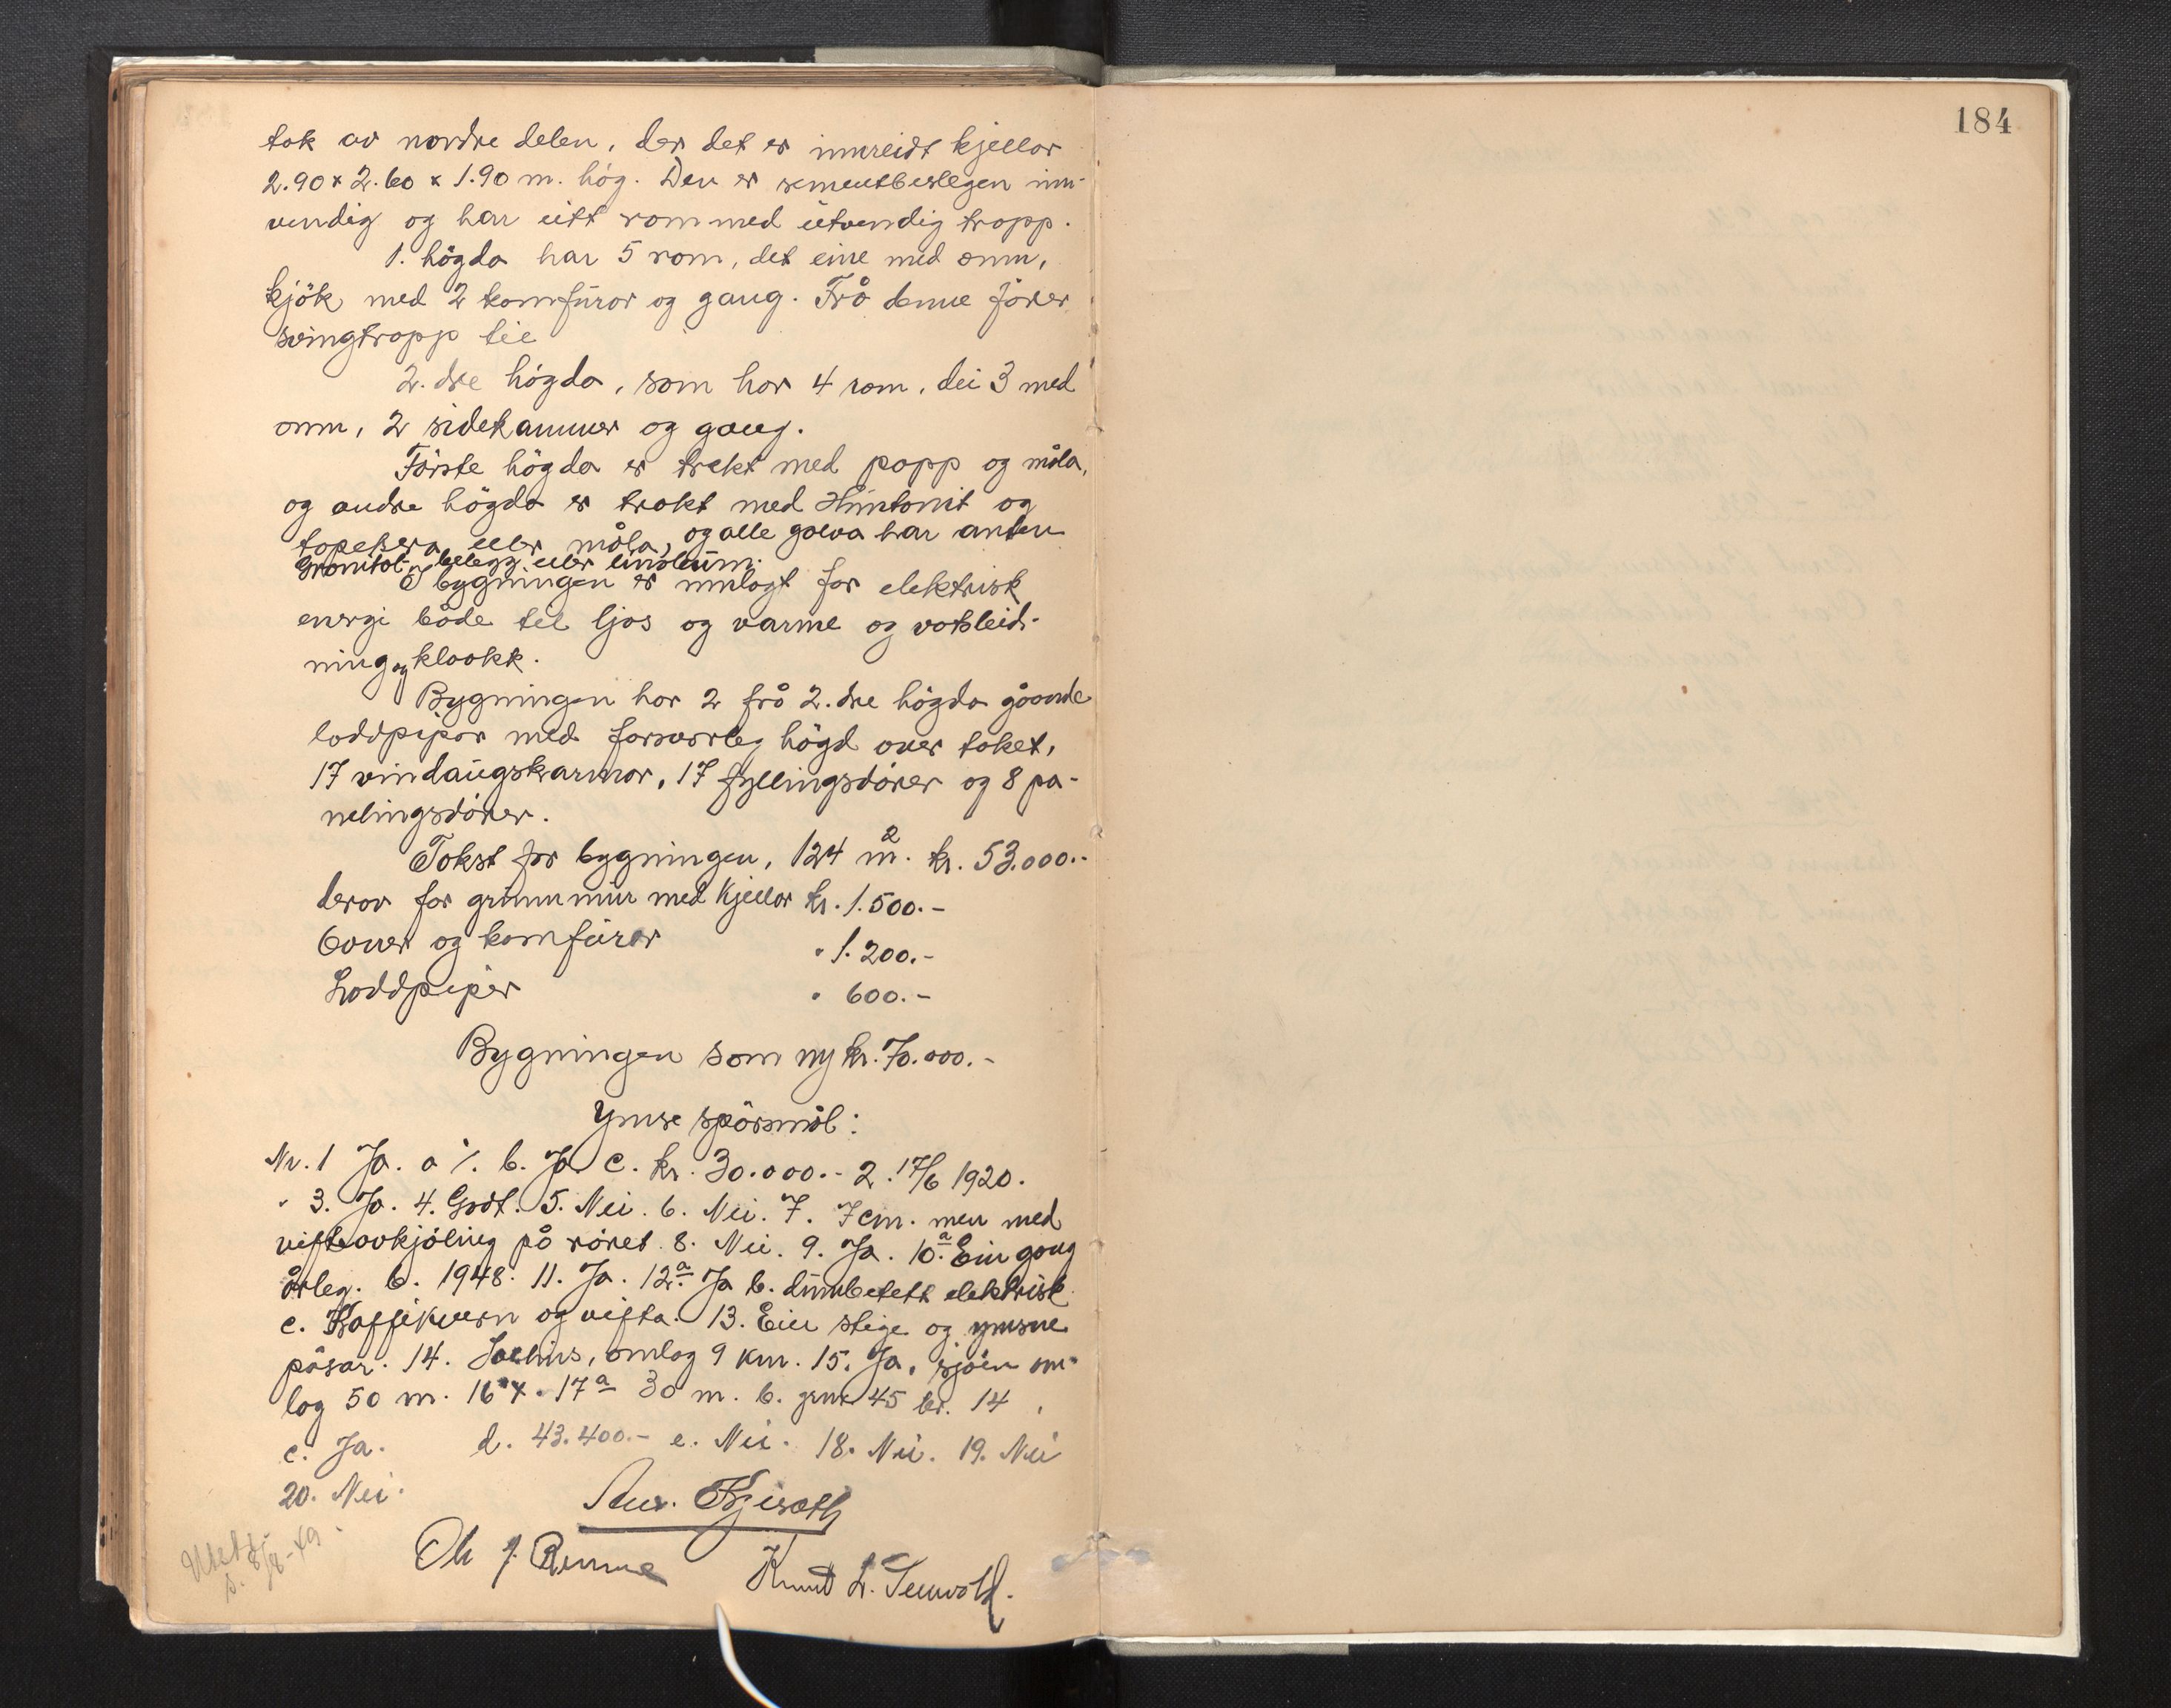 184
tak av nordre delen, der det er innreidt kjellar
2.90 x 2.60 x 1.90 m. høg. Den er sementbeslegen inn-
vendig og har eitt rom med utvendig tropp.
1. høgda har 5 rom, det eine med omn,
kjøk med 2 komfurar og gang. Frå denne fører
svingtropp til
2. dre høgda, som har 4 rom, dei 3 med
omn, 2 sidekammer og gang.
Første høgda er trekt med papp og måla,
og andre høgda er trekt med Huntonit og
tapetsera eller måla, og alle golva har anten
Granitol-belegg eller linoleum.
I bygningen er innlagt for elektrisk
energi både til ljos og varme og vassleid-
ning og kloakk.
Bygningen har 2 frå 2. dre høgda gåande
loddpipor med forsvarleg høgd over taket,
17 vindaugskarmar, 17 fyllingsdører og 8 pa-
nelingsdører.
Takst for bygningen, 124 m². kr. 53.000.-
derav for grunnmur med kjellar kr. 1.500.-
Omner og komfurar " 1.200.-
Loddpiper " 600.-
Bygningen som ny kr. 70.000.-
Ymse spørsmål:
Nr. 1 Ja. a ./. b. Ja. c. kr. 30.000.- 2. 17/6 1920.
" 3. Ja. 4. Godt. 5. Nei. 6. Nei. 7. 7 cm. men med
vifteavkjøling på røret. 8. Nei. 9. Ja. 10.a Ein gong
årleg. b. 1948. 11. Ja. 12.a Ja b. elektrisk
c. Kaffikvern og vifta. 13. Ein stige og ymsne
pøsar. 14. omlag 9 km. 15. Ja, sjøen om-
lag 50 m. 16 x. 17a 30 m. b. gnr 45 br. 14,
c. Ja. d. 43.400.- e. Nei. 18. Nei. 19. Nei
20. Nei.
Knut L.
8/8-49